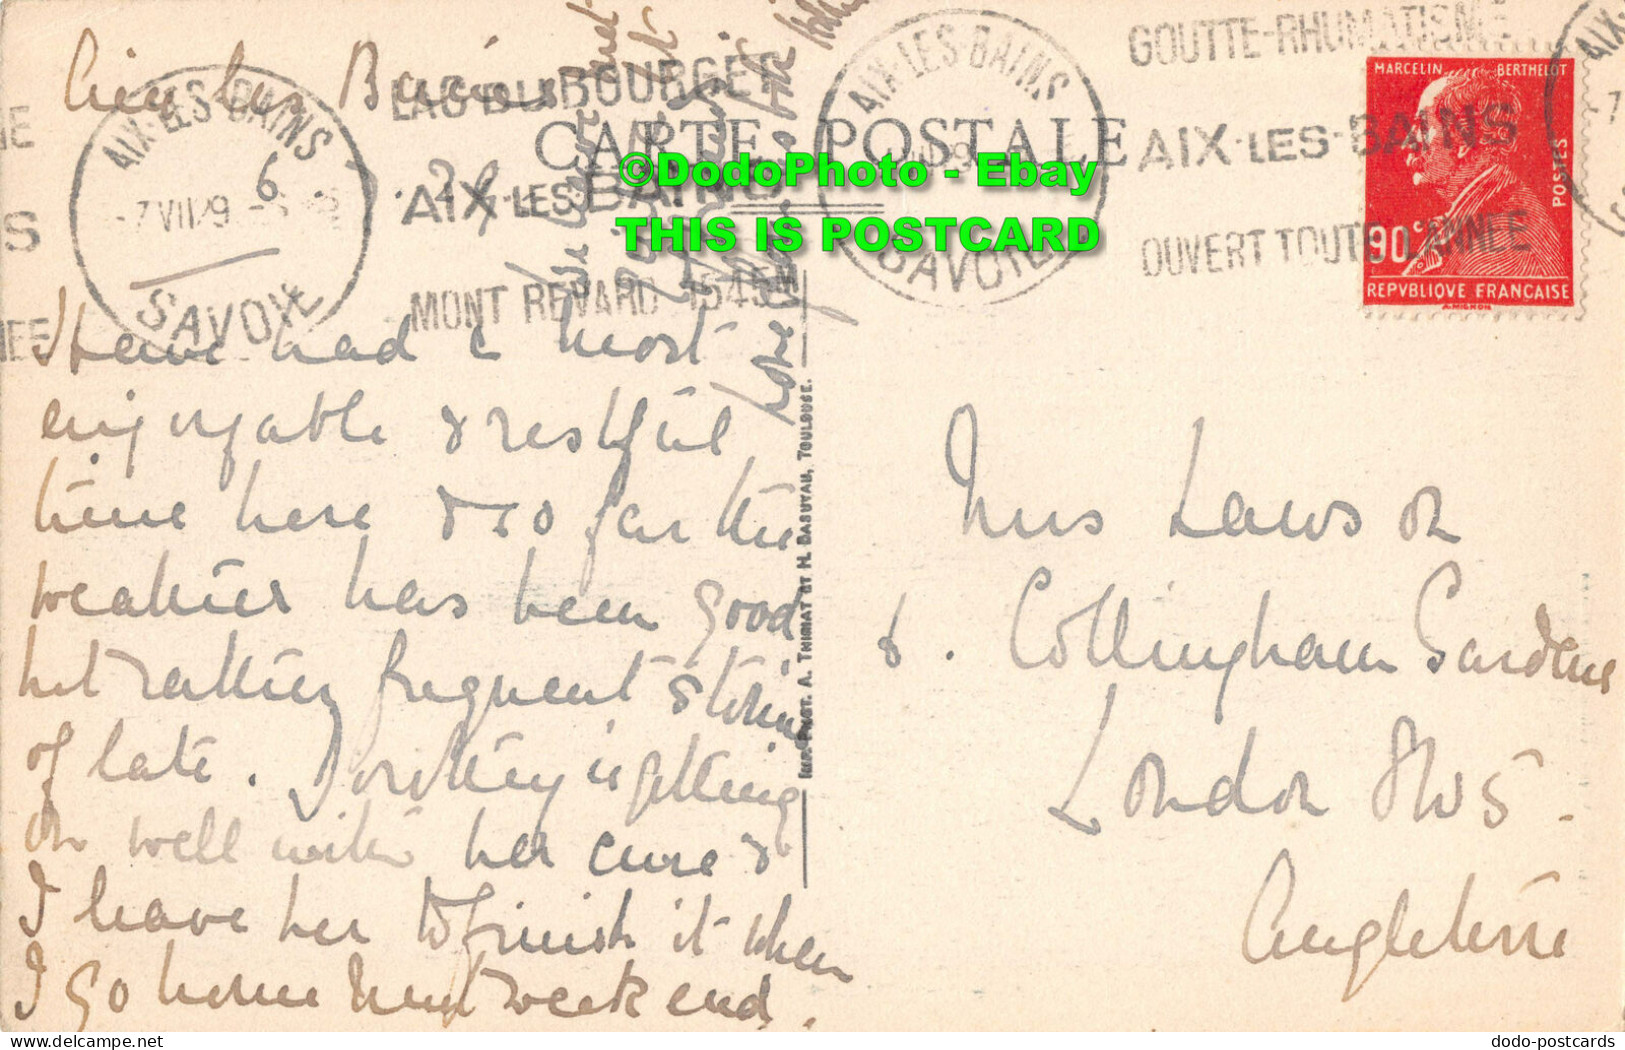 Aix les Bains
LAC DU BOURGET
AIX-LES-BAINS
MONT REVARD 1545M
AIX-LES-BAINS
SAVOIE
CARTE POSTALE
©DodoPhoto - Ebay
THIS IS POSTCARD
AIX-LES-BAINS
SAVOIE
GOUTTE-RHUMATISME
AIX-LES-BAINS
OUVERT TOUTE L'ANNEE
MARCELIN BERTHELOT
POSTES
90c
REPVBLIQVE FRANCAISE
I have had a most
enjoyable & restful
time here & so far the
weather has been good
but rather frequent storms
of late. Dorothy is getting
on well with her cure &
I leave her to finish it when
I go home next week end.
IMP. PHOT. A. THIRIAT ET H. BASUYAU, TOULOUSE.
Mrs Lawson
8. Collingham Gardens
London SW5.
Angleterre
dodo-postcards